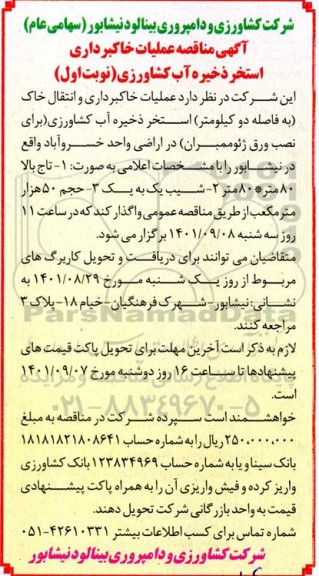 شرکت کشاورزی و دامپروری بینالود نیشابور (سهامی عام)
آگهی مناقصه عملیات خاکبرداری
استخر ذخیره آب کشاورزی (نوبت اول)
این شرکت در نظر دارد عملیات خاکبرداری و انتقال خاک
(به فاصله دو کیلومتر) استخر ذخیره آب کشاورزی (برای
نصب ورق ژئوممبران) در اراضی واحد خسروآباد واقع
در نیشابور را با مشخصات اعلامی به صورت: ۱- تاج بالا
۸۰ متر*۸۰ متر ۲- شیب یک به یک ۳- حجم ۵۰ هزار
متر مکعب از طریق مناقصه عمومی واگذار کند که در ساعت ۱۱
روز سه شنبه ۱۴۰۱/۰۹/۰۸ برگزار می شود.
متقاضیان می توانند برای دریافت و تحویل کاربرگ های
مربوط از روز یک شنبه مورخ ۱۴۰۱/۰۸/۲۹ به
نشانی: نیشابور- شهرک فرهنگیان- خیام ۱۸- پلاک ۳
مراجعه کنند.
لازم به ذکر است آخرین مهلت برای تحویل پاکت قیمت های
پیشنهادها تا ساعت ۱۶ روز دوشنبه مورخ ۱۴۰۱/۰۹/۰۷
است.
خواهشمند است سپرده شرکت در مناقصه به مبلغ
۲۵۰,۰۰۰,۰۰۰ ریال را به شماره حساب ۱۸۱۸۱۸۲۱۸۰۸۶۴۱
بانک سینا و یا به شماره حساب ۱۲۳۸۳۴۹۶۹ بانک کشاورزی
واریز کرده و فیش واریزی آن را به همراه پاکت پیشنهادی
قیمت به واحد بازرگانی شرکت تحویل دهند.
شماره تماس برای کسب اطلاعات بیشتر ۴۲۶۱۰۳۳۱-۰۵۱
شرکت کشاورزی و دامپروری بینالود نیشابور
ParsNamadData
۰۲۱-۸۸۳۴۹۶۷۰-۵